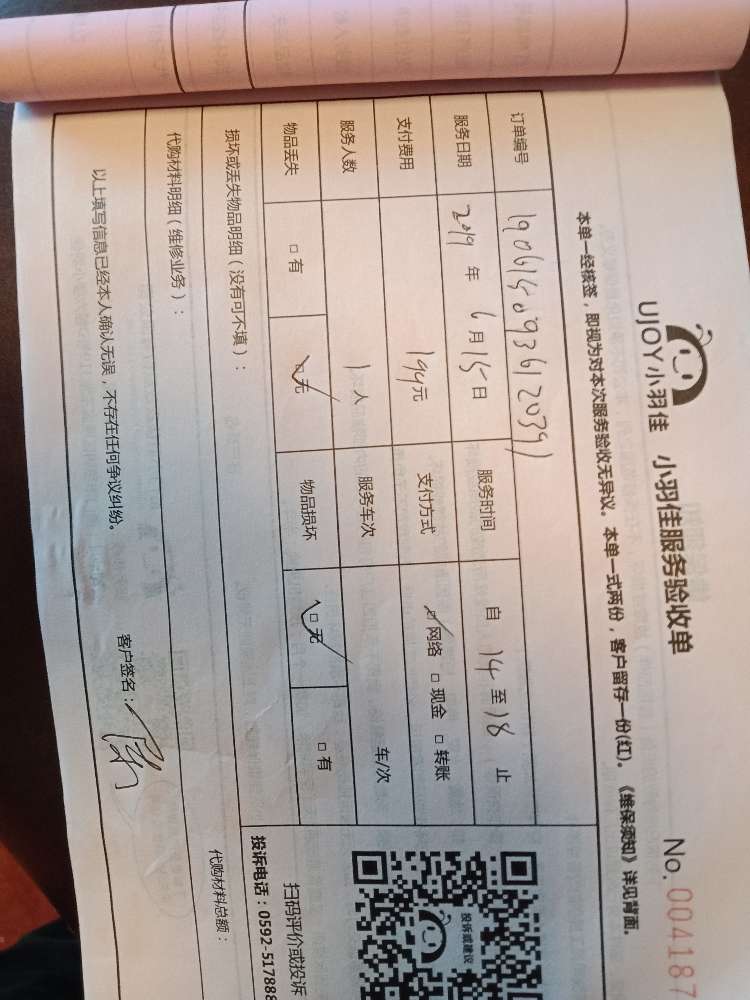 UJOY小羽佳 小羽佳服务验收单 No. 004187
本单一经核签，即视为对本次服务验收无异议。本单一式两份，客户留存一份(红)。《维保须知》详见背面。
订单编号 190615093612039)
服务日期 2019 年 6 月 15 日 服务时间 自 14 至 18 止
支付费用 199元 支付方式 网络 现金 转账
服务人数 1 人 服务车次 车/次
物品丢失 有 无 物品损坏 无 有
损坏或丢失物品明细（没有可不填）：
投诉或建议
扫码评价或投诉
投诉电话：0592-517888
代购材料明细（维修业务）： 代购材料总额：
以上填写信息已经本人确认无误，不存在任何争议纠纷。
客户签名：